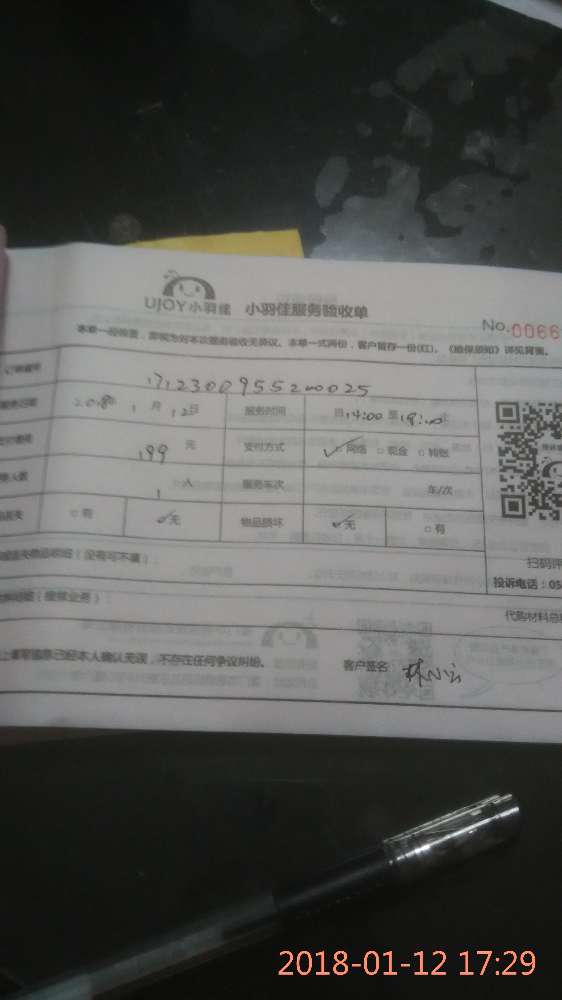 UJOY小羽佳 小羽佳服务验收单
No.0066
本单一经签署，即视为对本次服务验收无异议。本单一式两份，客户留存一份(红)。《验保须知》详见背面。
订单编号 1712300955200025
服务日期 2018年 1月 12日 服务时间 自14:00 至18:00止
199 元 支付方式 ✓网络 □现金 □转账
人数 1 人 服务车次 车/次
□有 ✓无 物品损坏 ✓无 □有
(没有可不填)：
扫码评
投诉电话：05
(维修业务)：
代购材料总
上事项已经本人确认无误，不存在任何争议纠纷。 客户签名：林小云
2018-01-12 17:29